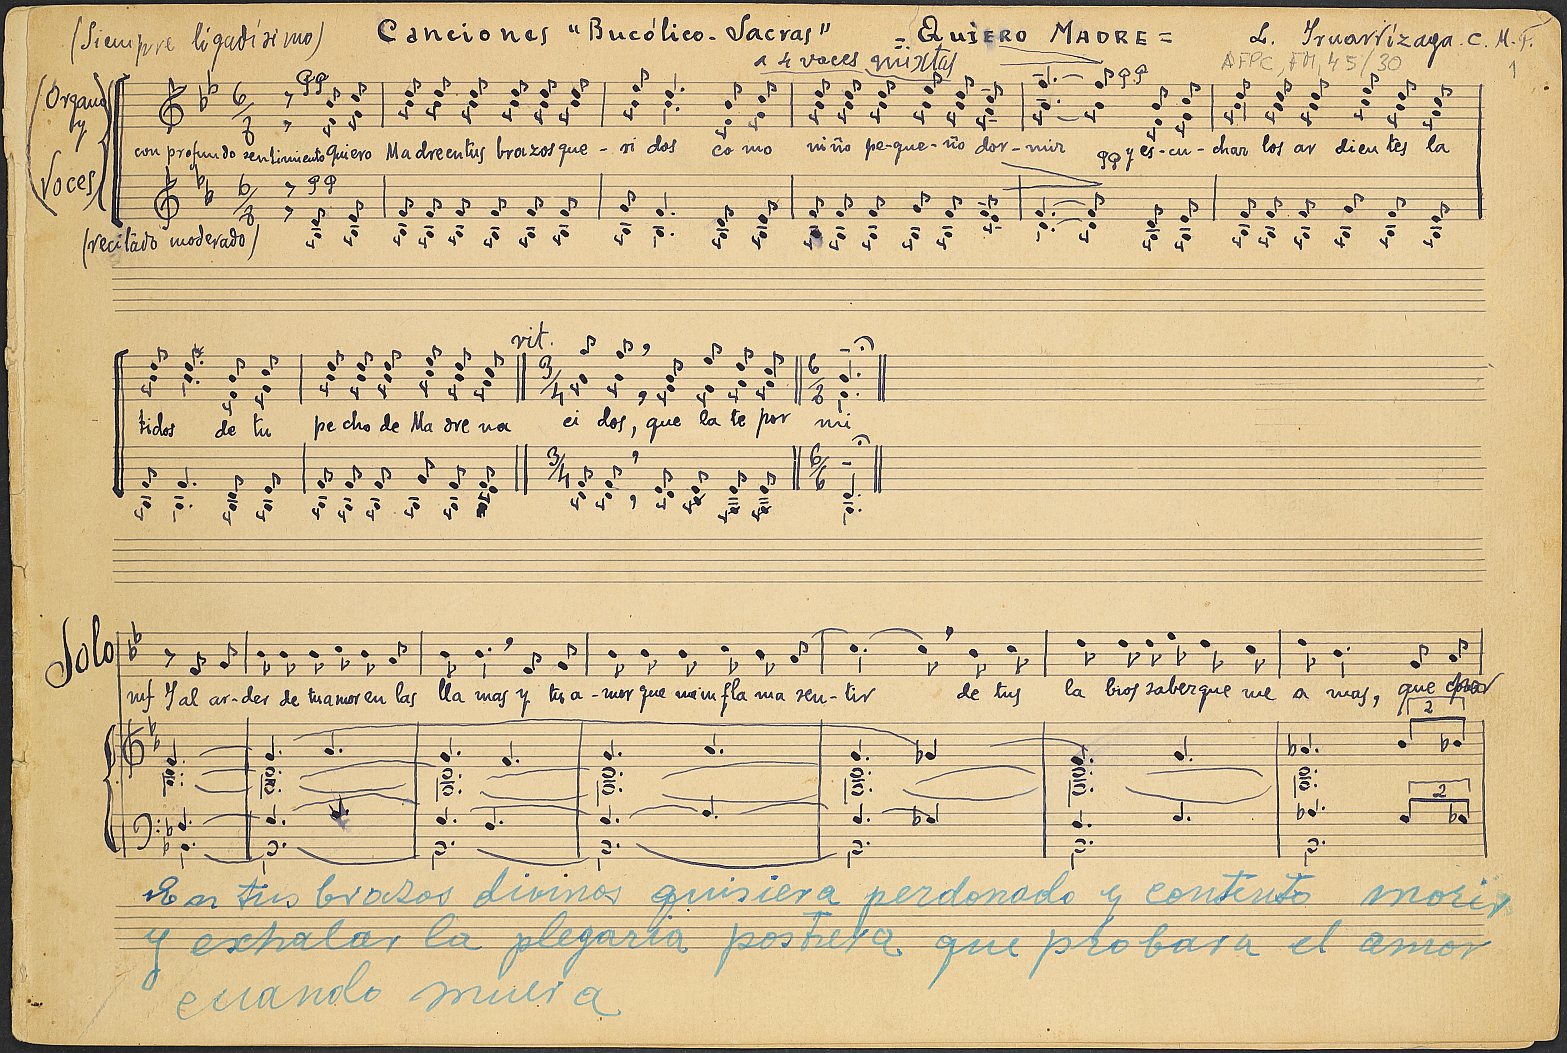 (Siempre ligadísimo) Canciones "Bucólico-Sacras" = Quiero Madre = L. Iruarrízaga. C. M. F.
a 4 voces mixtas AFPC, FM, 45/30
1
(Organo y Voces)
con profundo sentimiento Quiero Madre en tus brazos que - ri dos co mo niño pe-que-ño dor-mir y es-cu-char los ar dientes la
(recitado moderado)
rit.
tidos de tu pecho de Madre na ci dos, que late por mi
Solo
mf Y al ar-der de tu amor en las lla mas y tu a-mor que me in fla ma sen-tir de tus la bios saber que me a mas, que
2
2
En tus brazos divinos quisiera perdonado y contento morir
y exhalar la plegaria postrera que probara el amor
cuando muera